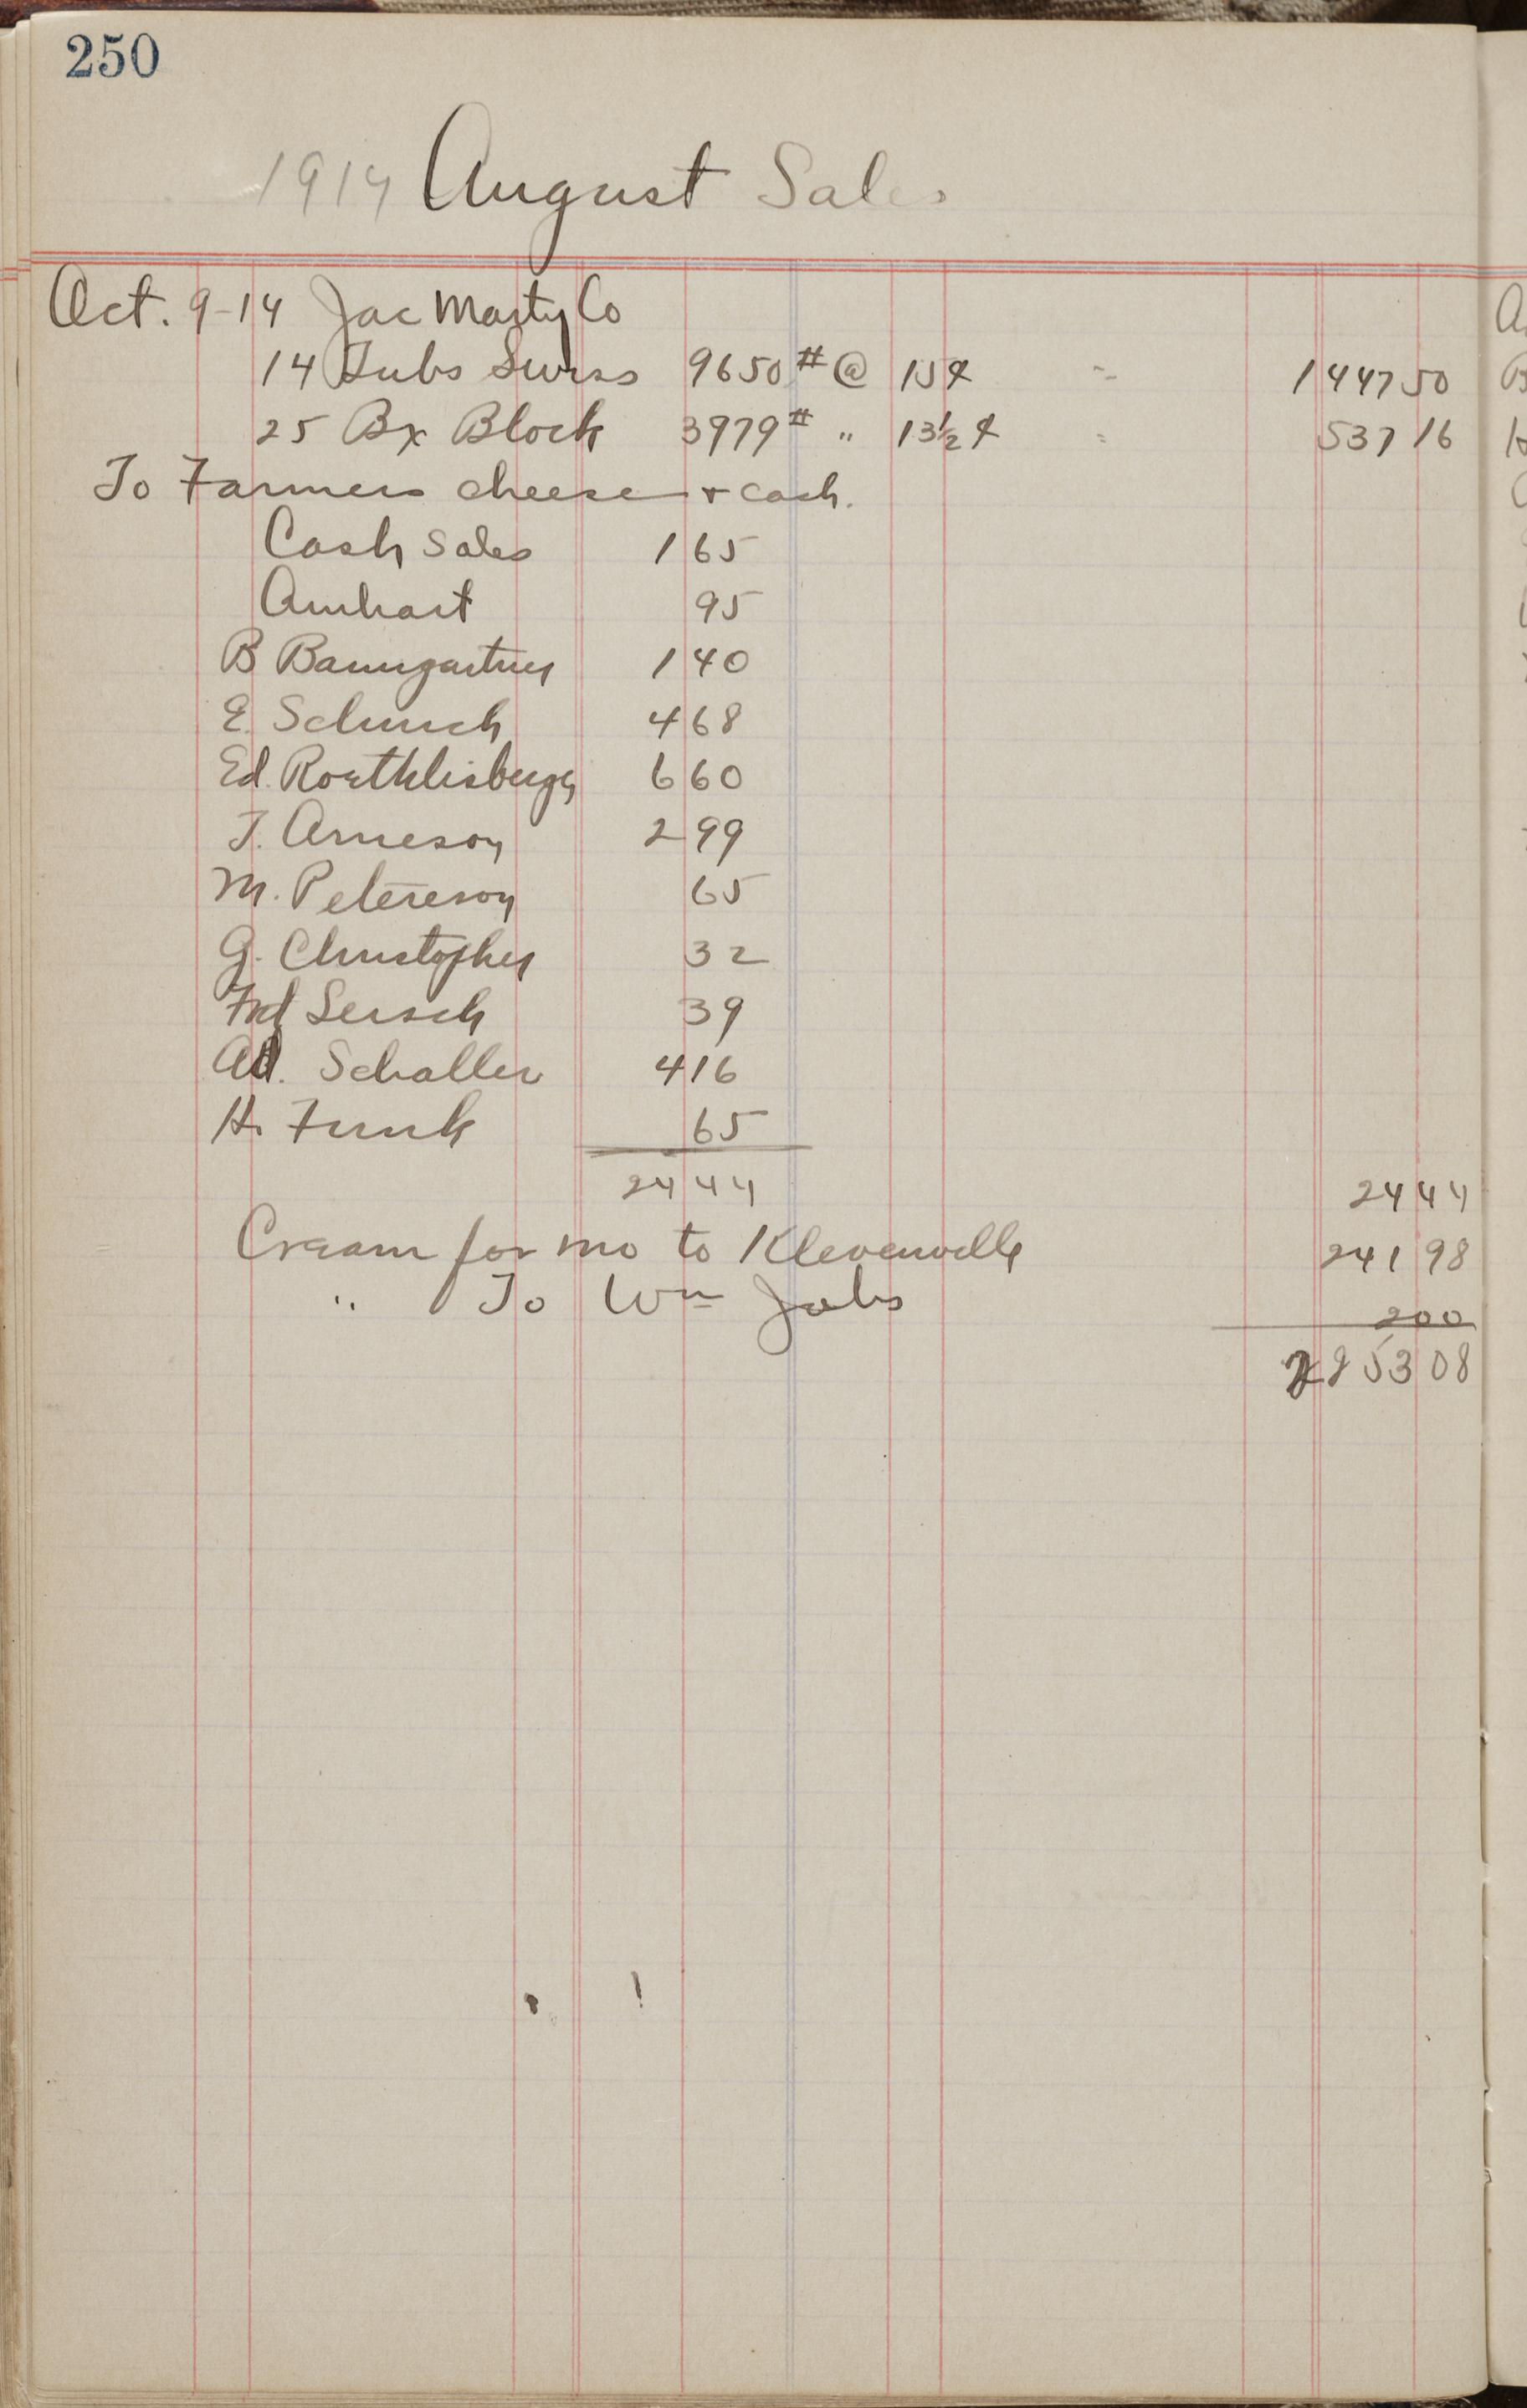 250
1914 August Sales
Oct. 9-14 Jac Marty Co
14 Tubs Swiss 9650 # @ 15¢ = 1447 50
25 Bx Block 3979 # " 13½ ¢ = 537 16
To Farmers cheese + cash.
Cash Sales 1 65
Amhart 95
B Baumgartner 1 40
E. Schurch 4 68
Ed. Roethlisberger 6 60
T. Arneson 2 99
M. Petereson 65
G. Christopher 32
Fred Lersch 39
Ad. Schaller 4 16
H. Funk 65
24 44 24 44
Cream for mo to Klevenville 241 98
" To Wm Jabs 2 00
2253 08